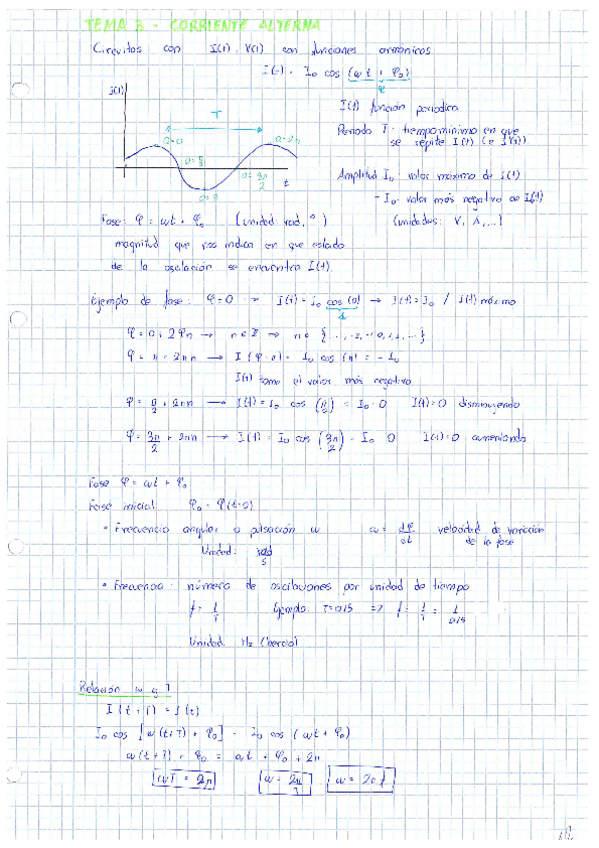 TEMA 3 - CORRIENTE ALTERNA
Circuitos con I(t), V(t) con funciones armónicas
I(t) = I₀ cos (ωt + φ₀)
φ
I(t)
T
t
φ=0
φ=π/2
φ=π
φ=3π/2
φ=2π
I(t) función periódica
Periodo T: tiempo mínimo en que
se repite I(t) (o V(t))
Amplitud I₀: valor máximo de I(t)
- I₀: valor más negativo de I(t)
(unidades: V, A, ...)
Fase: φ = ωt + φ₀ (unidad rad, °)
magnitud que nos indica en que estado
de la oscilación se encuentra I(t).
Ejemplo de fase: φ=0 → I(t) = I₀ cos (0) → I(t) = I₀ / I(t) máximo
1
φ = 0 + 2πn → n ∈ Z → n ∈ {..., -2, -1, 0, 1, 2, ...}
φ = π + 2πn → I (φ=π) = I₀ cos (π) = - I₀
I(t) toma el valor más negativo
φ = π/2 + 2πn → I(t) = I₀ cos (π/2) = I₀ · 0 I(t)=0 disminuyendo
φ = 3π/2 + 2πn → I(t) = I₀ cos (3π/2) = I₀ · 0 I(t)=0 aumentando
Fase φ = ωt + φ₀
Fase inicial φ₀ = φ(t=0)
• Frecuencia angular o pulsación ω ω = dφ/dt velocidad de variación
de la fase
Unidad: rad/s
• Frecuencia: número de oscilaciones por unidad de tiempo
f = 1/T Ejemplo: T=0,1s => f = 1/T = 1/0,1s
Unidad: Hz (hercio)
Relación ω y T
I (t + T) = I(t)
I₀ cos [ω (t+T) + φ₀] = I₀ cos (ωt + φ₀)
ω (t+T) + φ₀ = ωt + φ₀ + 2π
ωT = 2π ω = 2π/T ω = 2πf